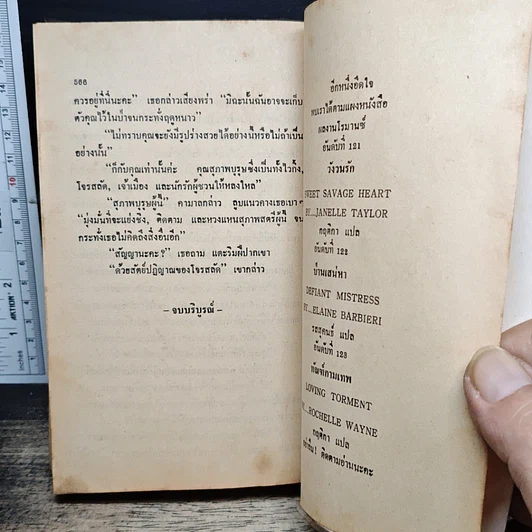 566
ควรอยู่ที่นี่นะคะ" เธอกล่าวเสียงพร่า "มิฉะนั้นฉันอาจจะเก็บ
ตัวคุณไว้ในป่าจนกระทั่งฤดูหนาว"
"ไม่ทราบคุณจะยังมีรูปร่างสวยได้อย่างนี้หรือไม่ถ้าเป็น
อย่างนั้น"
"ก็กับคุณเท่านั้นค่ะ คุณสุภาพบุรุษซึ่งเป็นทั้งไวกิ้ง,
โจรสลัด, เจ้าเมือง และนักรักผู้ชวนให้หลงใหล"
"สุภาพบุรุษผู้นี้" คามาลกล่าว ลูบแนวคางเธอเบาๆ
"มุ่งมั่นที่จะแย่งชิง, ติดตาม และหวงแหนสุภาพสตรีผู้นี้ จน
กระทั่งเธอไม่คิดถึงสิ่งอื่นอีก"
"สัญญานะคะ?" เธอถาม แตะริมฝีปากเขา
"ด้วยสัตย์ปฏิญาณของโจรสลัด" เขากล่าว
- จบบริบูรณ์ -
อีกหนึ่งอึดใจ
พบเราได้ตามแผงหนังสือ
ผลงานโรมานซ์
อันดับที่ 121
วังวนรัก
SWEET SAVAGE HEART
BY...JANELLE TAYLOR
กฤติกา แปล
อันดับที่ 122
บ่วงเสน่หา
DEFIANT MISTRESS
BY...ELAINE BARBIERI
รสสุคนธ์ แปล
อันดับที่ 123
ทัณฑ์กามเทพ
LOVING TORMENT
ROCHELLE WAYNE
กฤติกา แปล
ติดตามอ่านนะคะ